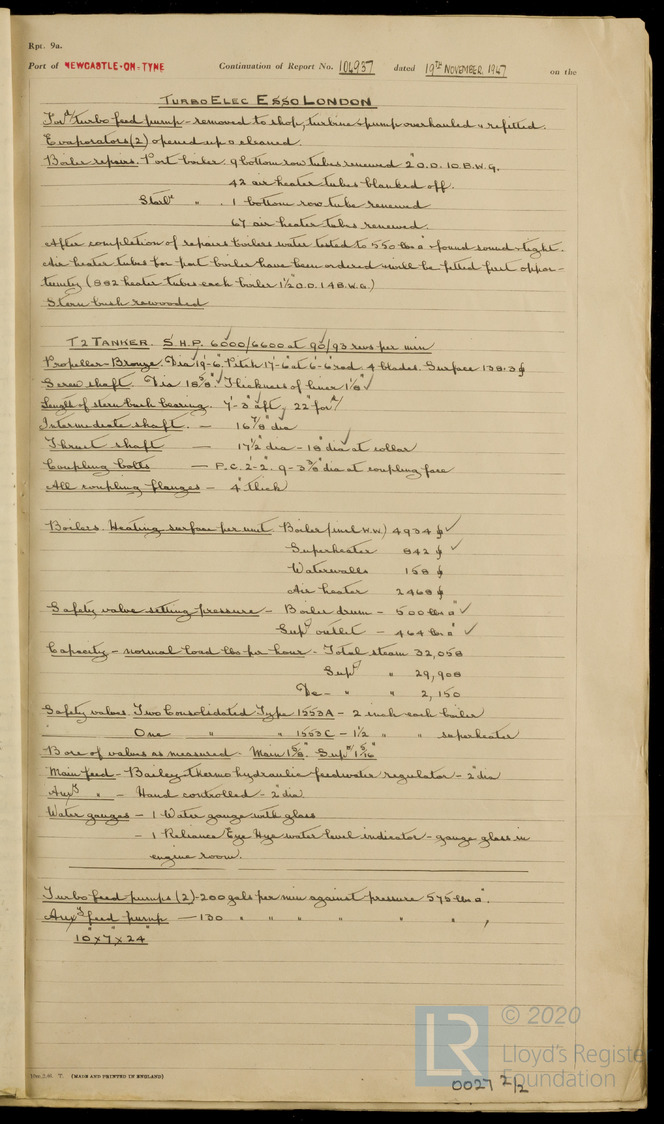 Rpt. 9a.
Port of NEWCASTLE-ON-TYNE Continuation of Report No. 104937 dated 19TH NOVEMBER, 1947 on the
TURBO ELEC ESSO LONDON
For'd turbo feed pump - removed to shop, turbine & pump overhauled & refitted.
Evaporators (2) opened up & cleaned.
Boiler repairs. Port boiler. 9 bottom row tubes renewed 2" O.D. 10 B.W.G.
42 air heater tubes blanked off.
Starbd " . 1 bottom row tube renewed
67 air heater tubes renewed.
After completion of repairs boilers water tested to 550 lbs □" & found sound & tight.
Air heater tubes for port boiler have been ordered & will be fitted first oppor-
tunity (882 heater tubes each boiler 1½" O.D. 14 B.W.G.)
Stern bush rewooded
T2 TANKER. S.H.P. 6000/6600 at 90/93 revs per min
Propeller - Bronze. Dia 19'-6" Pitch 17'-6" at 6'-6" rad. 4 blades. Surface 138.3 ф
Screw shaft. Dia 18⅝" Thickness of liner 1⅛" ✓
Length of stern bush bearing. 7'-3" aft, 22" for'd
Intermediate shaft. - 16⅞" dia
Thrust shaft - 17½" dia - 18" dia at collar
Coupling bolts - P.C. 2'-2". 9 - 3⅜" dia at coupling face
All coupling flanges - 4" thick
Boilers. Heating surface per unit Boiler (incl W.W.) 4934 ф ✓
Superheater 842 ф ✓
Waterwalls 158 ф
Air heater 2468 ф
Safety valve setting pressure - Boiler drum - 500 lbs □" ✓
Supr outlet - 464 lbs □" ✓
Capacity - normal load lbs per hour - Total steam 32,058
Supd " 29,908
De- " " 2,150
Safety valves. Two Consolidated Type 1553A - 2 inch each boiler
One " " 1553C - 1½ " " superheater
Bore of valves as measured - Main 1⅝". Supr 1 5/16"
Main feed - Bailey thermo hydraulic feedwater regulator - 2" dia
Auxy " - Hand controlled - 2" dia
Water gauges - 1 Water gauge with glass
- 1 Reliance Eye Hye water level indicator - gauge glass in
engine room.
Turbo feed pumps (2) - 200 gals per min against pressure 575 lbs □".
Auxy feed pump - 130 " " " " " "
10" x 7" x 24"
(MADE AND PRINTED IN ENGLAND)
LR © 2020
Lloyd's Register
Foundation
0027 2/2